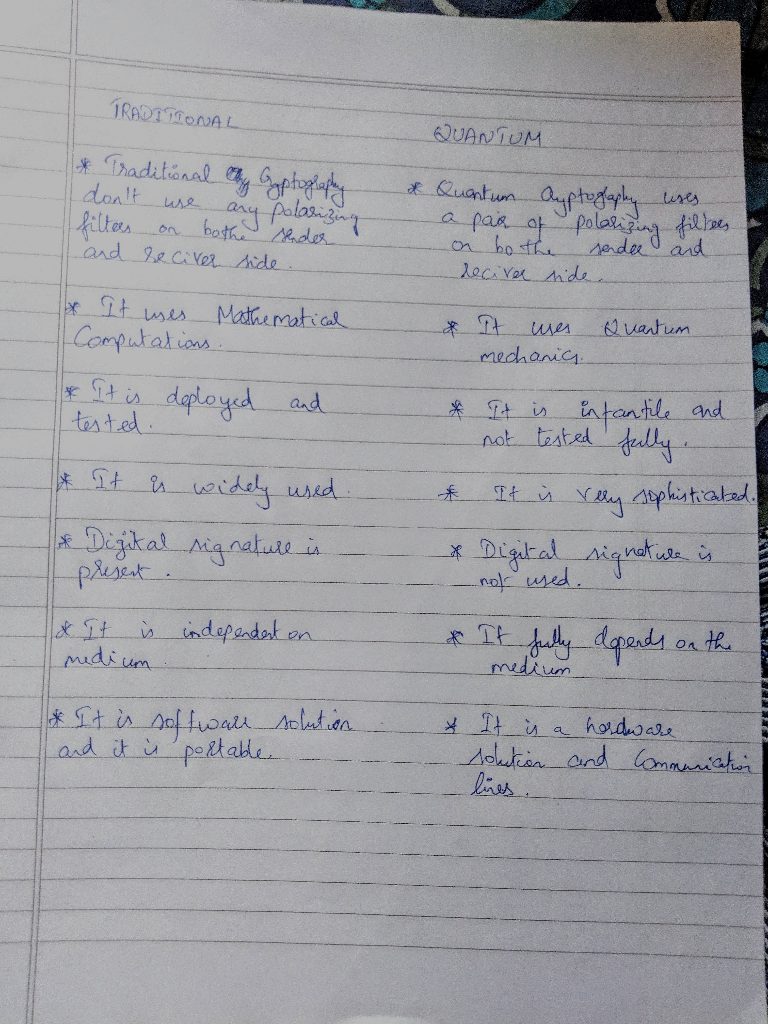 TRADITIONAL
* Traditional Cryptography
don't use any polarizing
filters on bothe sender
and reciver side.
* It uses Mathematical
Computations.
* It is deployed and
tested.
* It is widely used.
* Digital signature is
present.
* It is independent on
medium
* It is software solution
and it is portable.
QUANTUM
* Quantum Cryptography uses
a pair of polarizing filters
on bothe sender and
reciver side.
* It uses Quantum
mechanics.
* It is infantile and
not tested fully.
* It is very sophisticated.
* Digital signature is
not used.
* It fully depends on the
medium
* It is a hardware
solution and Communication
lines.